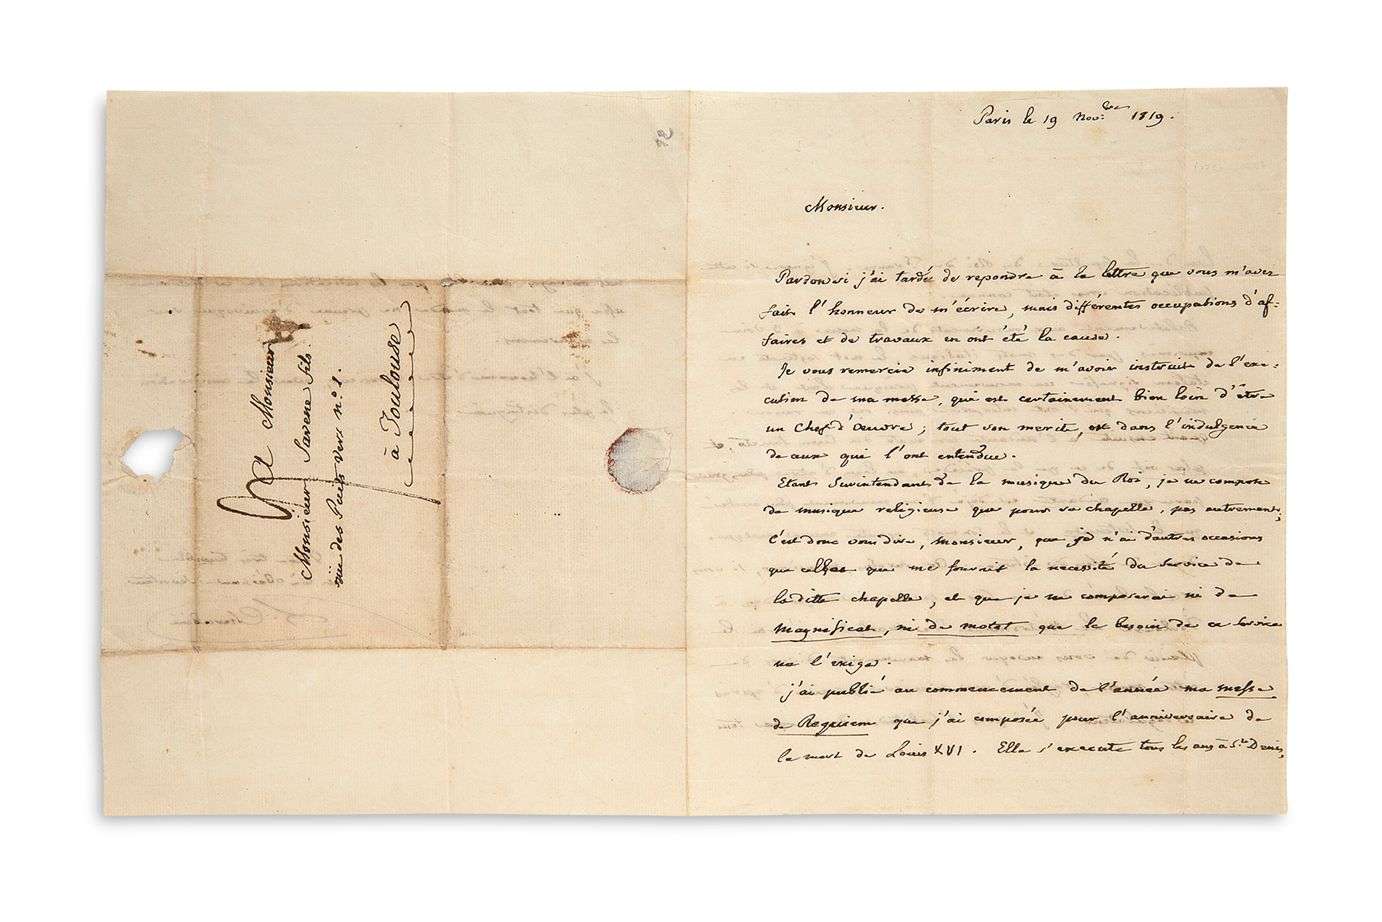 A Monsieur
Monsieur Savene fils.
rüe des Puits vers n.° 1.
à Toulouse
Paris le 19 Nov.bre 1819.
Monsieur.
Pardon si j'ai tardé de repondre à la lettre que vous m'avez
fait l'honneur de m'écrire, mais différentes occupations d'af-
faires et de travaux en ont été la cause.
Je vous remercie infiniment de m'avoir instruit de l'exe-
cution de ma messe, qui est certainement bien loin d'être
un chef d'œuvre; tout son merite, est dans l'indulgence
de ceux qui l'ont entendue.
Etant Surintendant de la musique du Roi, je ne compose
de musique religieuse que pour sa chapelle, pas autrement;
C'est donc vous dire, monsieur, que je n'ai d'autres occasions
que celles que me fournit la necessité du Service de
la ditte chapelle, et que je ne composerai ni de
Magnificat, ni de motet que le besoin de ce Service
ne l'exige.
j'ai publié au commencement de l'année ma messe
de Requiem que j'ai composée pour l'anniversaire de
la mort de Louis XVI. Elle s'execute tous les ans à S.t Denis,